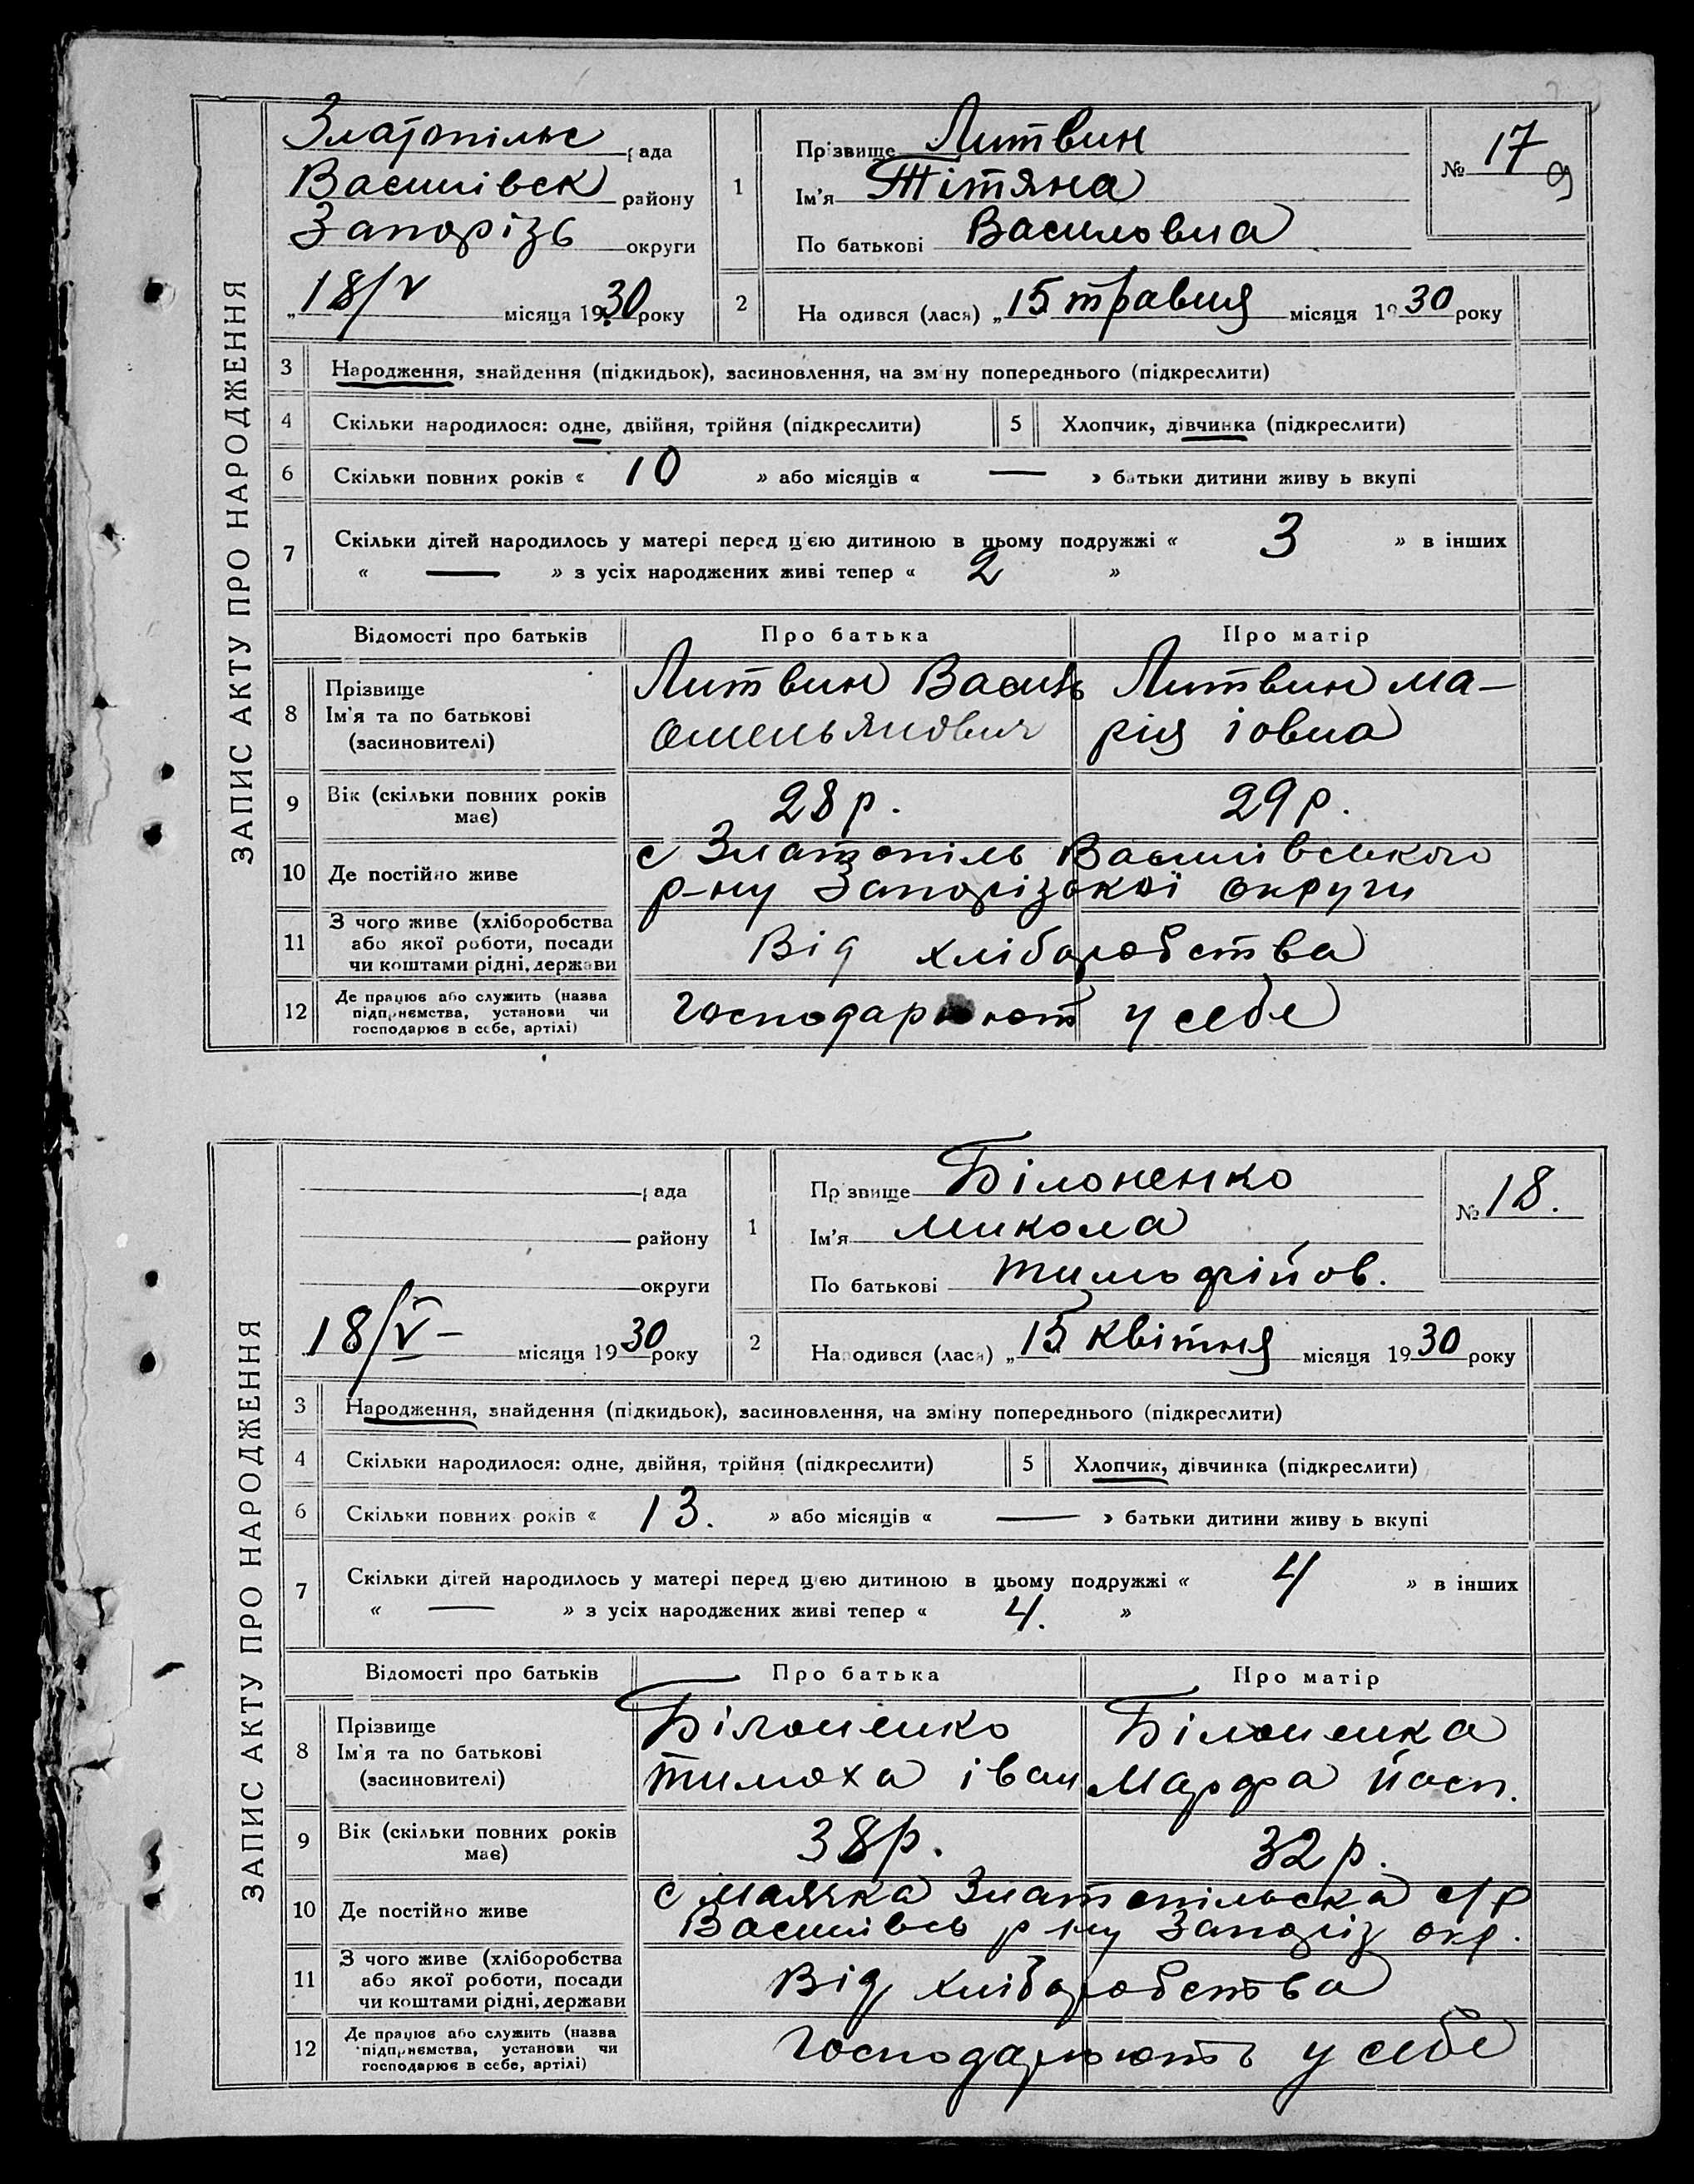 ЗАПИС АКТУ ПРО НАРОДЖЕННЯ
Златопільс рада
Василівск району
Запорізь округи
„18/V місяця 1930 року
1
Прізвище Литвин
Ім'я Тітяна
По батькові Василовна
№ 17
2
Народився (лася) „15 травня місяця 1930 року
3 Народження, знайдення (підкидьок), засиновлення, на зміну попереднього (підкреслити)
4 Скільки народилося: одне, двійня, трійня (підкреслити) 5 Хлопчик, дівчинка (підкреслити)
6 Скільки повних років « 10 » або місяців « — » батьки дитини живуть вкупі
7 Скільки дітей народилось у матері перед цією дитиною в цьому подружжі « 3 » в інших
« — » з усіх народжених живі тепер « 2 »
Відомості про батьків Про батька Про матір
8 Прізвище
Ім'я та по батькові
(засиновителі)
Литвин Василь
Омельянович
Литвин Ма-
рія Іовна
9 Вік (скільки повних років
має)
28 р. 29 р.
10 Де постійно живе
с Златопіль Василівського
р-ну Запорізької округи
11 З чого живе (хліборобства
або якої роботи, посади
чи коштами рідні, держави
Від хліборобства
12 Де працює або служить (назва
підприємства, установи чи
господарює в себе, артілі)
Господарюют у себе
ЗАПИС АКТУ ПРО НАРОДЖЕННЯ
рада
району
округи
18/V – місяця 1930 року
1
Прізвище Білоненко
Ім'я Микола
По батькові Тимофійов.
№ 18.
2
Народився (лася) „15 квітня місяця 1930 року
3 Народження, знайдення (підкидьок), засиновлення, на зміну попереднього (підкреслити)
4 Скільки народилося: одне, двійня, трійня (підкреслити) 5 Хлопчик, дівчинка (підкреслити)
6 Скільки повних років « 13. » або місяців « — » батьки дитини живуть вкупі
7 Скільки дітей народилось у матері перед цією дитиною в цьому подружжі « 4 » в інших
« — » з усіх народжених живі тепер « 4. »
Відомості про батьків Про батька Про матір
8 Прізвище
Ім'я та по батькові
(засиновителі)
Білоненко
Тимоха Іван
Білоненка
Марфа Йосп.
9 Вік (скільки повних років
має)
38 р. 32 р.
10 Де постійно живе
с Маячка Златопільска с/р
Василівсь р-ну Запоріз окр.
11 З чого живе (хліборобства
або якої роботи, посади
чи коштами рідні, держави
Від хліборобства
12 Де працює або служить (назва
підприємства, установи чи
господарює в себе, артілі)
Господарюють у себе